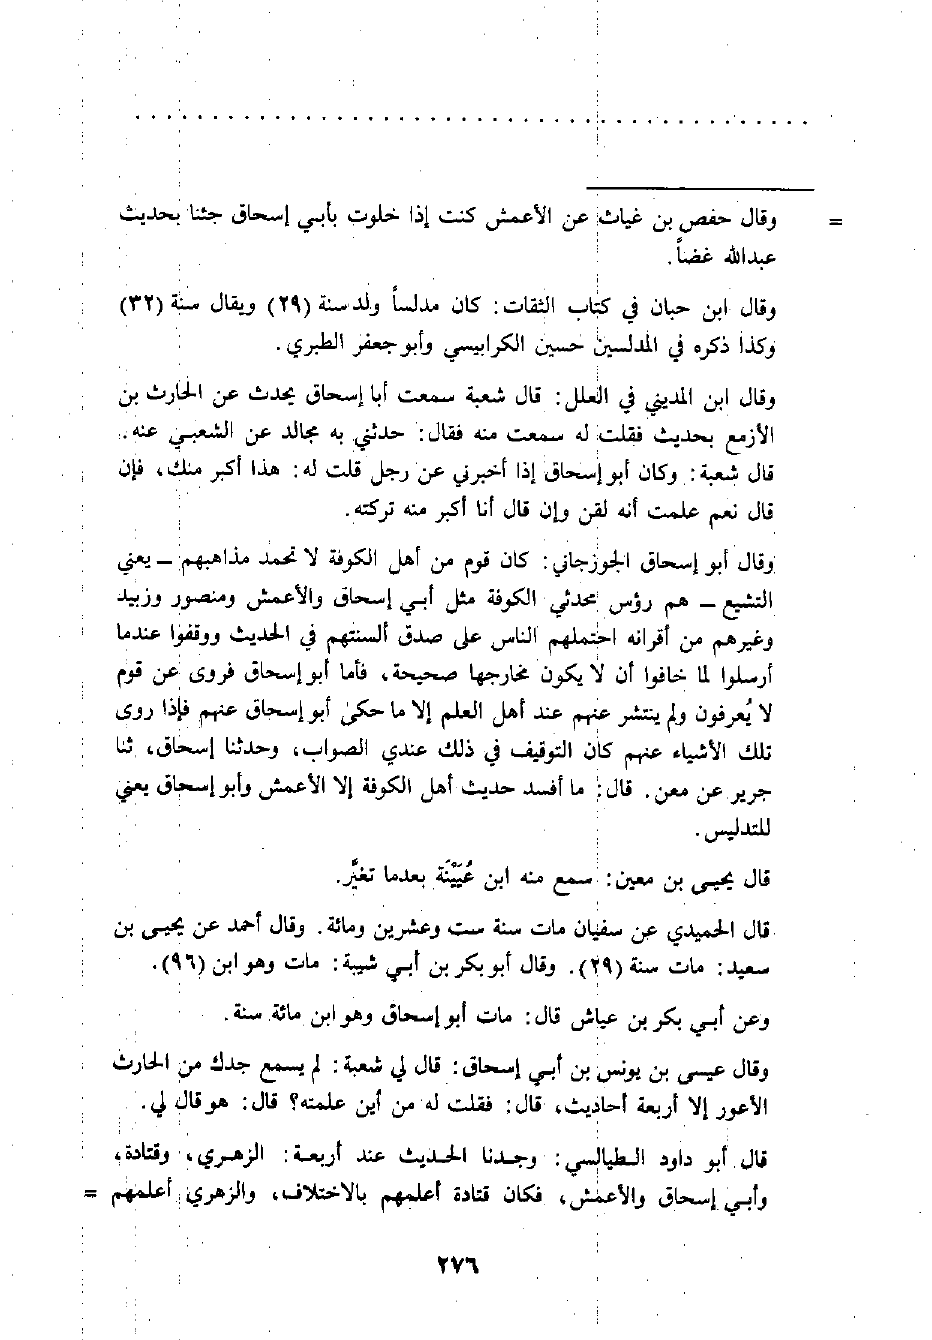 = وقال حفص بن غياث عن الأعمش كنت إذا خلوت بأبي إسحاق جئنا بحديث
عبدالله غضاً.
وقال ابن حبان في كتاب الثقات: كان مدلساً ولد سنة (٢٩) ويقال سنة (٣٢)
وكذا ذكره في المدلسين حسين الكرابيسي وأبو جعفر الطبري.
وقال ابن المديني في العلل: قال شعبة سمعت أبا إسحاق يحدث عن الحارث بن
الأزمع بحديث فقلت له سمعت منه فقال: حدثني به مجالد عن الشعبي عنه.
قال شعبة: وكان أبو إسحاق إذا أخبرني عن رجل قلت له: هذا أكبر منك، فإن
قال نعم علمت أنه لقن وإن قال أنا أكبر منه تركته.
وقال أبو إسحاق الجوزجاني: كان قوم من أهل الكوفة لا تحمد مذاهبهم ــ يعني
التشيع ــ هم رؤس محدثي الكوفة مثل أبي إسحاق والأعمش ومنصور وزبيد
وغيرهم من أقرانه احتملهم الناس على صدق ألسنتهم في الحديث ووقفوا عندما
أرسلوا لما خافوا أن لا يكون مخارجها صحيحة، فأما أبو إسحاق فروى عن قوم
لا يُعرفون ولم ينتشر عنهم عند أهل العلم إلا ما حكى أبو إسحاق عنهم فإذا روى
تلك الأشياء عنهم كان التوقيف في ذلك عندي الصواب، وحدثنا إسحاق، ثنا
جرير عن معن. قال: ما أفسد حديث أهل الكوفة إلا الأعمش وأبو إسحاق يعني
للتدليس.
قال يحيى بن معين: سمع منه ابن عُيَيْنَة بعدما تغيَّر.
قال الحميدي عن سفيان مات سنة ست وعشرين ومائة. وقال أحمد عن يحيى بن
سعيد: مات سنة (٢٩). وقال أبو بكر بن أبي شيبة: مات وهو ابن (٩٦).
وعن أبي بكر بن عياش قال: مات أبو إسحاق وهو ابن مائة سنة.
وقال عيسى بن يونس بن أبي إسحاق: قال لي شعبة: لم يسمع جدك من الحارث
الأعور إلا أربعة أحاديث، قال: فقلت له من أين علمته؟ قال: هو قال لي.
قال أبو داود الطيالسي: وجدنا الحديث عند أربعة: الزهري، وقتادة،
وأبي إسحاق والأعمش، فكان قتادة أعلمهم بالاختلاف، والزهري أعلمهم =
٢٧٦